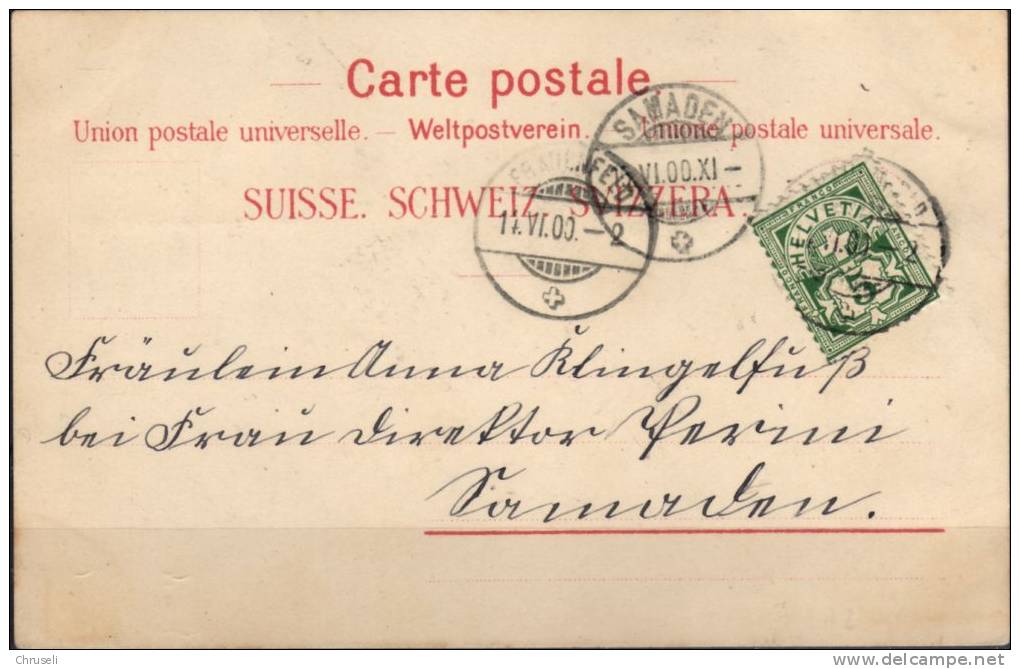 Carte postale.
Union postale universelle. — Weltpostverein. — Unione postale universale.
SUISSE. SCHWEIZ. SVIZZERA.
SAMADEN
VI.00.XI –
FRAUENFELD
11.VI.00. – 2
FRANCO
HELVETIA
5
Fräulein Anna Klingelfuß
bei Frau Direktor Perini
Samaden.
Chruseli
delcampe.net